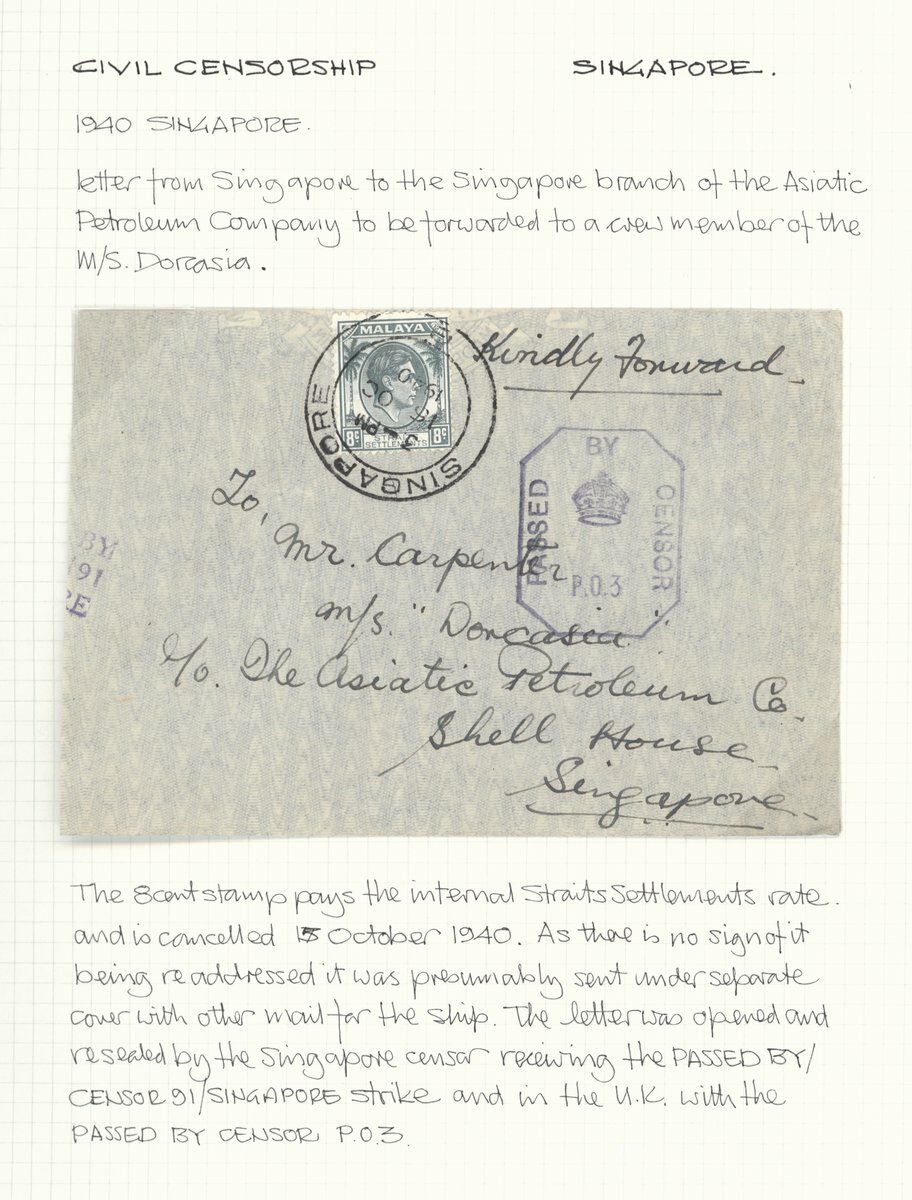 CIVIL CENSORSHIP SINGAPORE.
1940 SINGAPORE.
letter from Singapore to the Singapore branch of the Asiatic
Petroleum Company to be forwarded to a crew member of the
M/S. Dorcasia.
MALAYA
8c STRAITS SETTLEMENTS 8c
SINGAPORE
5 - PM
15 OC
1940
Kindly Forward
PASSED BY CENSOR
P.O.3
BY
91
RE
To,
Mr. Carpenter
m/s. "Dorcasia"
c/o. The Asiatic Petroleum Co.
Shell House
Singapore
The 8 cent stamp pays the internal Straits Settlements rate.
and is cancelled 15 October 1940. As there is no sign of it
being readdressed it was presumably sent under separate
cover with other mail for the ship. The letter was opened and
resealed by the Singapore censor receiving the PASSED BY/
CENSOR 91/SINGAPORE strike and in the U.K. with the
PASSED BY CENSOR P.O.3.